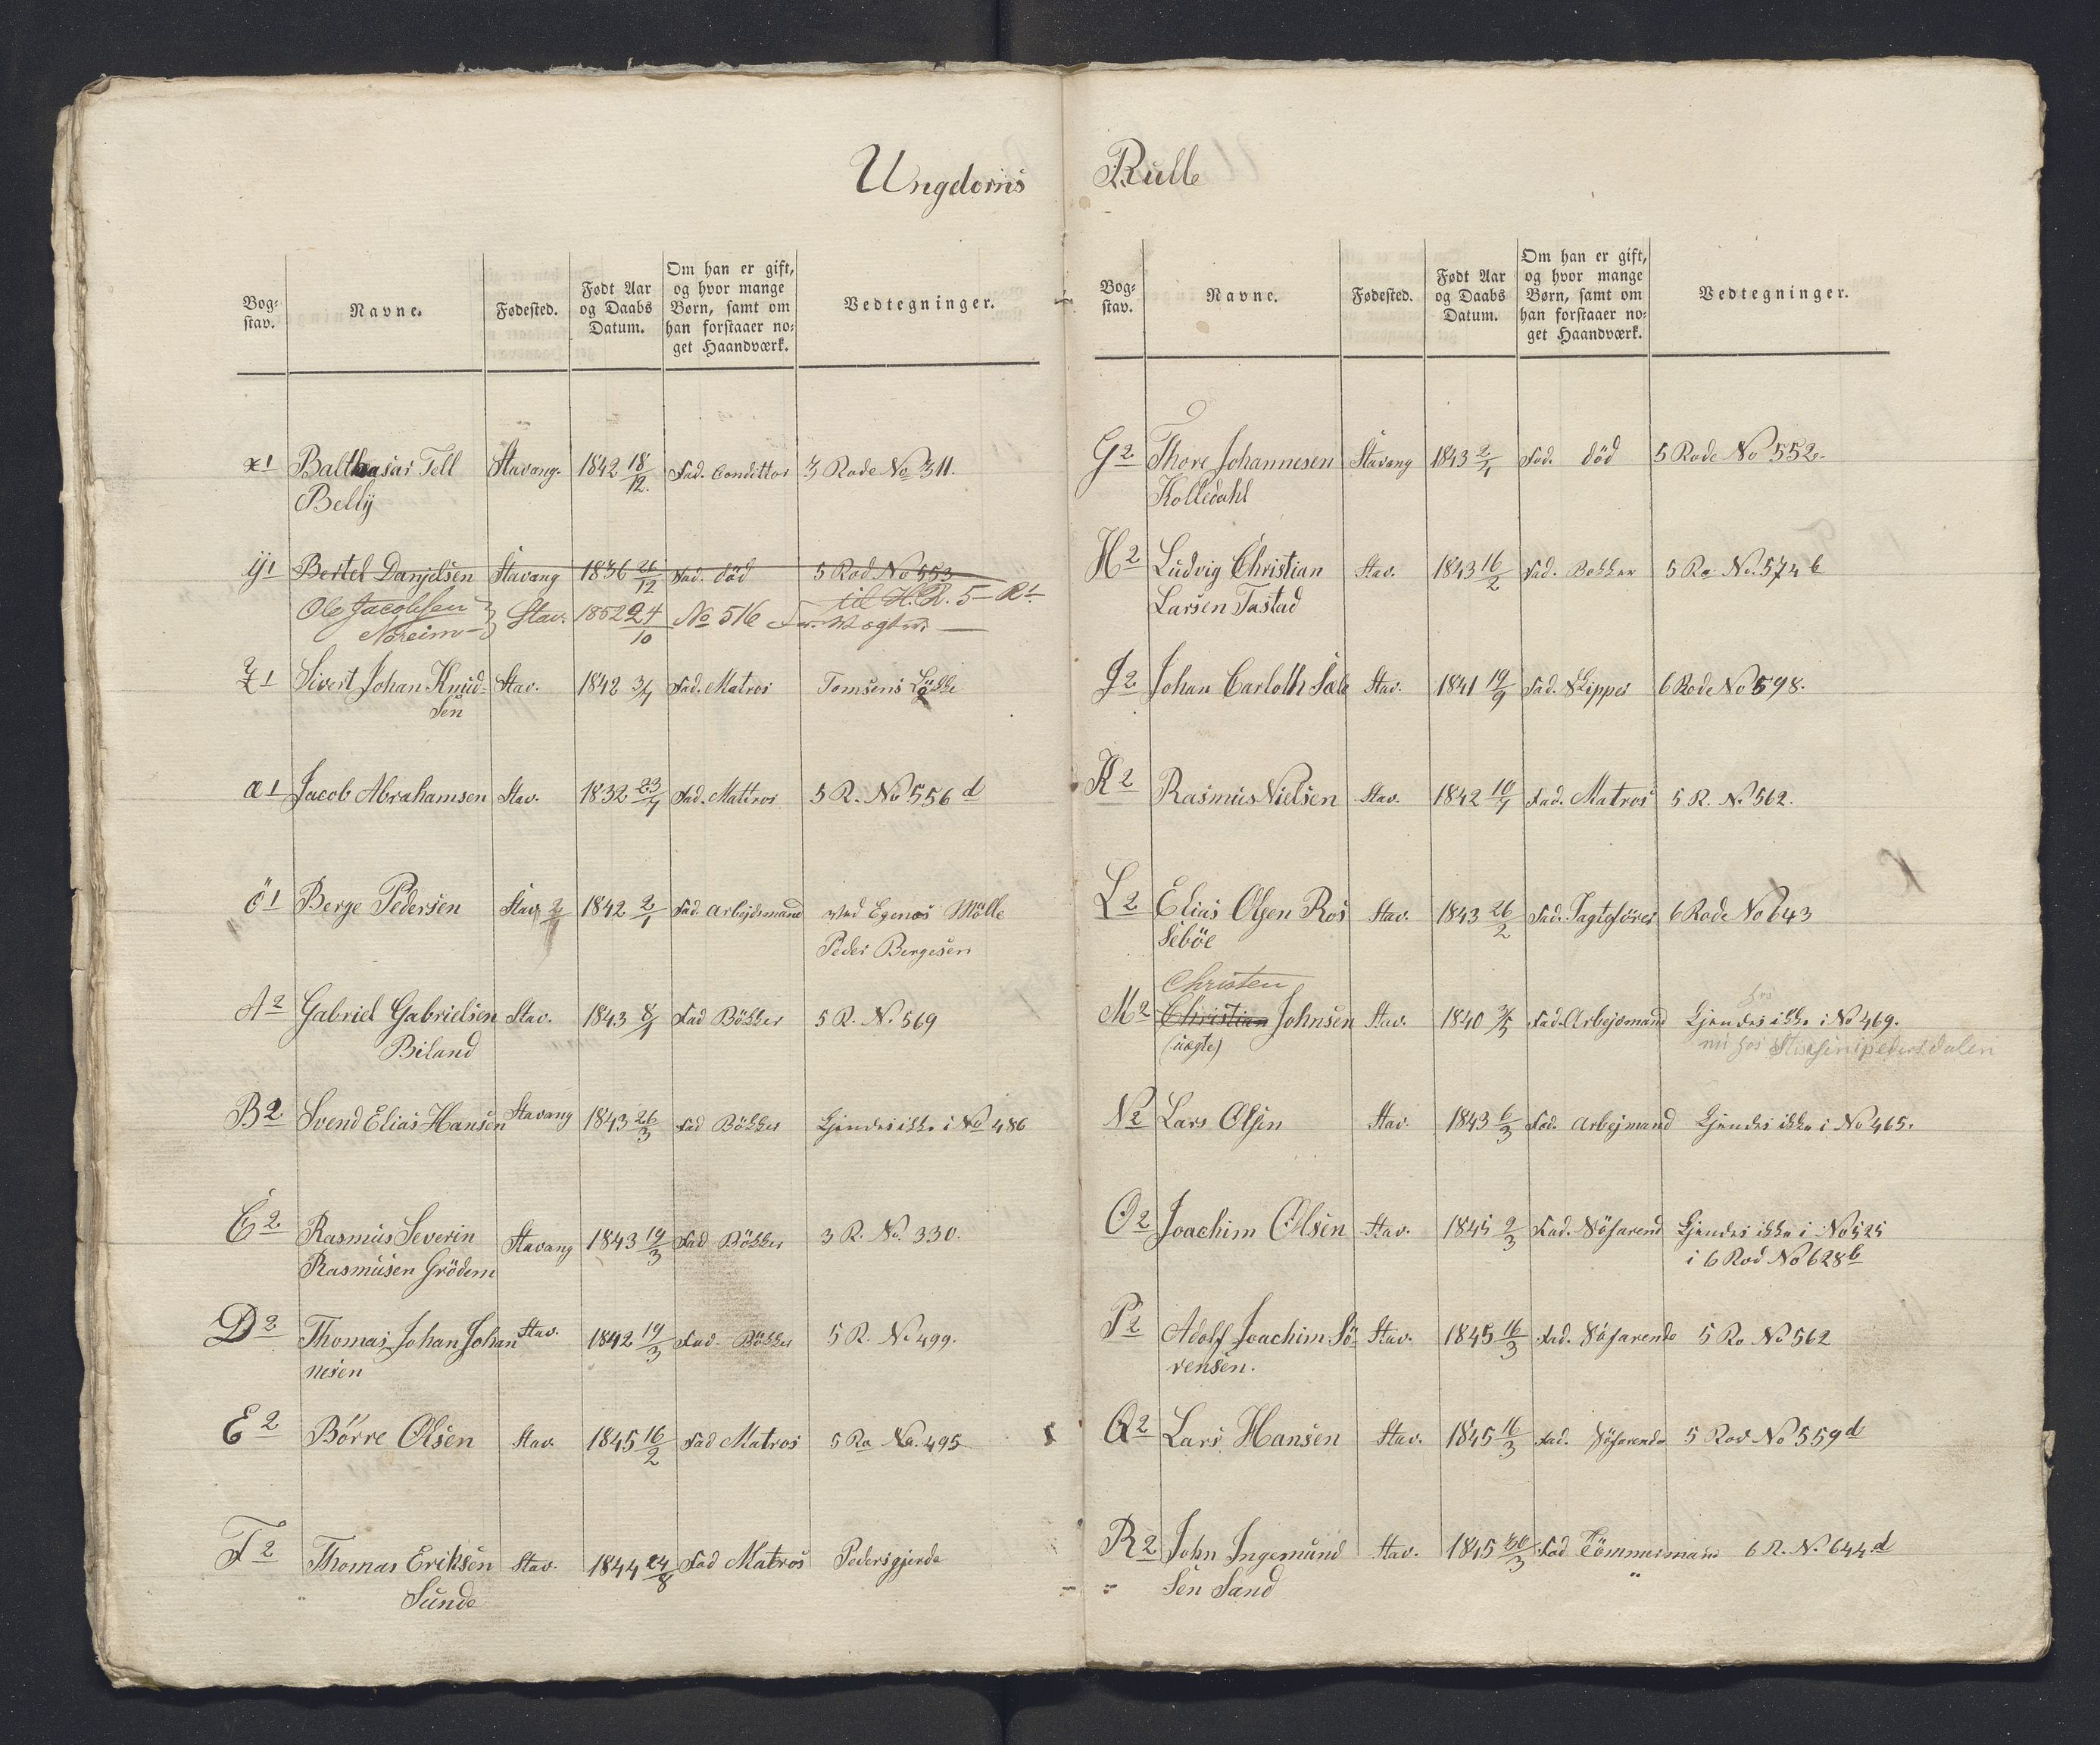 Ungdoms Rulle
Bog-
stav.
Navne.
Fødested.
Født Aar
og Daabs
Datum.
Om han er gift,
og hvor mange
Børn, samt om
han forstaaer no-
get Haandværk.
Vedtegninger.
x1 Balthasar Tell Stavang. 1842 18/12. Fad. Condittor 3 Rode No 311.
Bellÿ
ÿ1 Bertel Danjelsen Stavang 1836 21/12 Fad. död 5 Rod No 553
til H. R. 5 R
Ole Jacobsen Stav. 1852 24/10 No 516
Noreim
z1 Sivert Johan Knud- Stav. 1842 3/4 Fad. Matros Tomsens Lökke
sen
æ1 Jacob Abrahamsen Stav. 1832 23/4 Fad. Mattros 5 R. No 556 d
ö1 Berge Pedersen Stav. 1842 2/1 Fad. Arbejdsmand ved Egenes Mölle
Peder Bergesen
A2 Gabriel Gabrielsen Stav. 1843 8/1 Fad Bökker 5 R. No. 569
Biland
B2 Svend Elias Hansen Stavang 1843 26/3 Fad Bökker Kjendes ikke i No 486
C2 Rasmus Severin Stavang 1843 19/3 Fad Bökker 3 R. No. 330.
Rasmusen Grödem
D2 Thomas Johan Johan Stav. 1842 19/3 Fad. Bökker 5 R. No 499.
nesen
E2 Börre Olsen Stav. 1845 16/2 Fad Matros 5 Ro No. 495
F2 Thomas Eriksen Stav. 1844 24/8 Fad Matros Pedersgjerde
Sunde
Bog-
stav.
Navne.
Fødested.
Født Aar
og Daabs
Datum.
Om han er gift,
og hvor mange
Børn, samt om
han forstaaer no-
get Haandværk.
Vedtegninger.
G2 Thore Johannesen Stavang 1843 2/4 Fad. död 5 Rode No 552.
Kolledahl
H2 Ludvig Christian Stav. 1843 16/2 Fad. Bokker 5 Ro No. 574 b
Larsen Tastad
J2 Johan Carloth Stav. 1841 19/9 Fad. Skipper 6 Rode No 598.
K2 Rasmus Nielsen Stav. 1842 10/4 Fad. Matros 5 R. No. 562.
L2 Elias Olsen Ros Stav. 1843 26/2 Fad. Jagtförer 6 Rode No 643
seböe
Christen
M2 Christian Johnsen Stav. 1840 3/5 Fad. Arbejdsmand Kjendes ikke i No 469.
(uægte) nu hos
N2 Lars Olsen Stav. 1843 6/3 Fad. Arbejmand Kjendes ikke i No 465.
O2 Joachim Olsen Stav. 1845 2/3 Fad. Söfarend Kjendes ikke i No 525
i 6 Rod No 628 b
P2 Adolf Joachim Sö- Stav. 1845 16/3 Fad. Söfarende 5 Ro No 562
rensen.
Q2 Lars Hansen Stav. 1845 16/3 Fad. Söfarende 5 Rod No 559 d
R2 John Ingemund Stav. 1845 30/3 Fad Tömmermand 6 R. No. 644 d
sen Sand